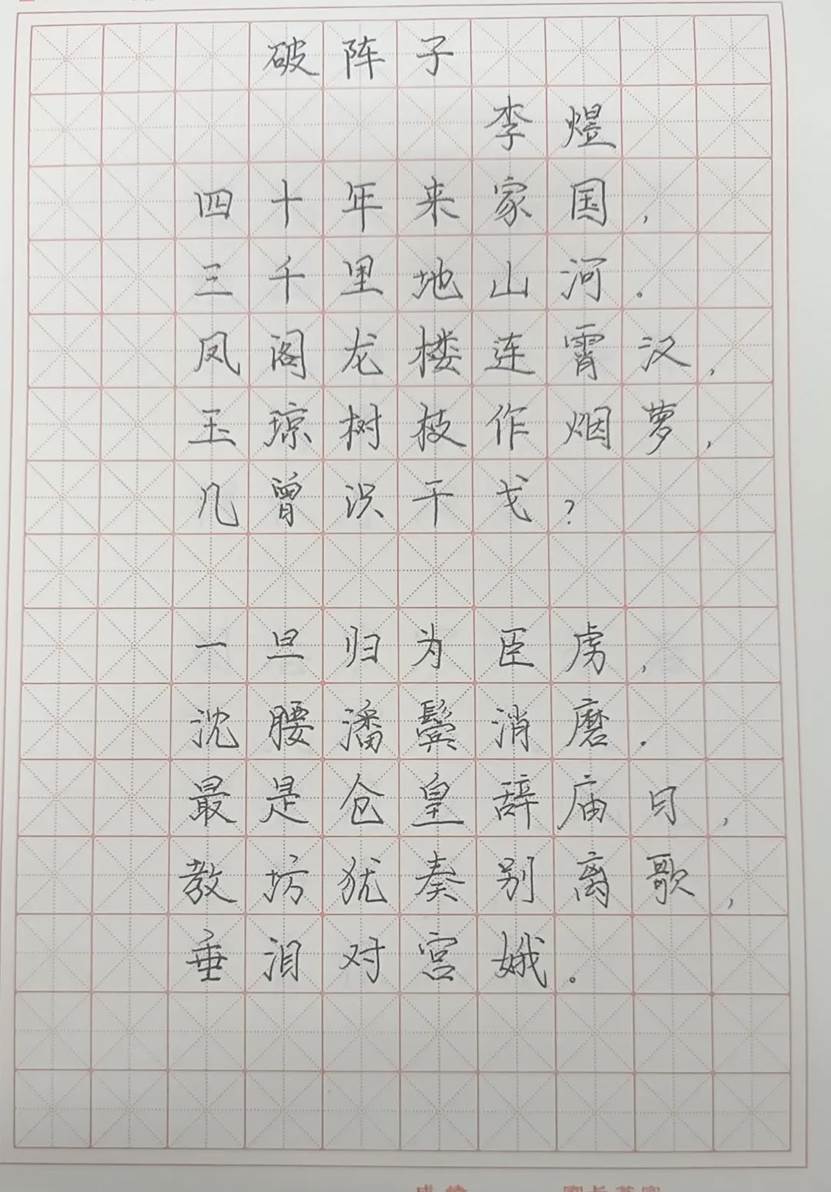 破阵子
李煜
四十年来家国，
三千里地山河。
凤阁龙楼连霄汉，
玉琼树枝作烟萝，
几曾识干戈？
一旦归为臣虏，
沈腰潘鬓消磨。
最是仓皇辞庙日，
教坊犹奏别离歌，
垂泪对宫娥。